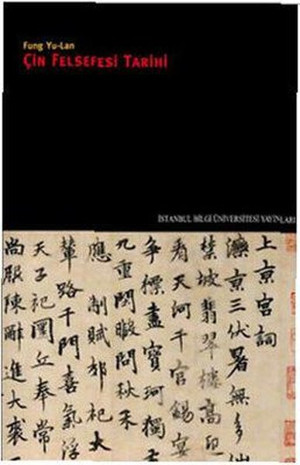 Fung Yu-Lan
ÇİN FELSEFESİ TARİHİ
İSTANBUL BİLGİ ÜNİVERSİTESİ YAYINLARI
上京宫詞
灤京三伏暑無多
禁坡翡翠樓高
看天河千官錫宴
争標盡寶珂獨
九重閒暇問秋禾
應制賦郊祀大
輦路千門喜氣浮
天子祀圜丘奉常
尚服陳辭進大裘